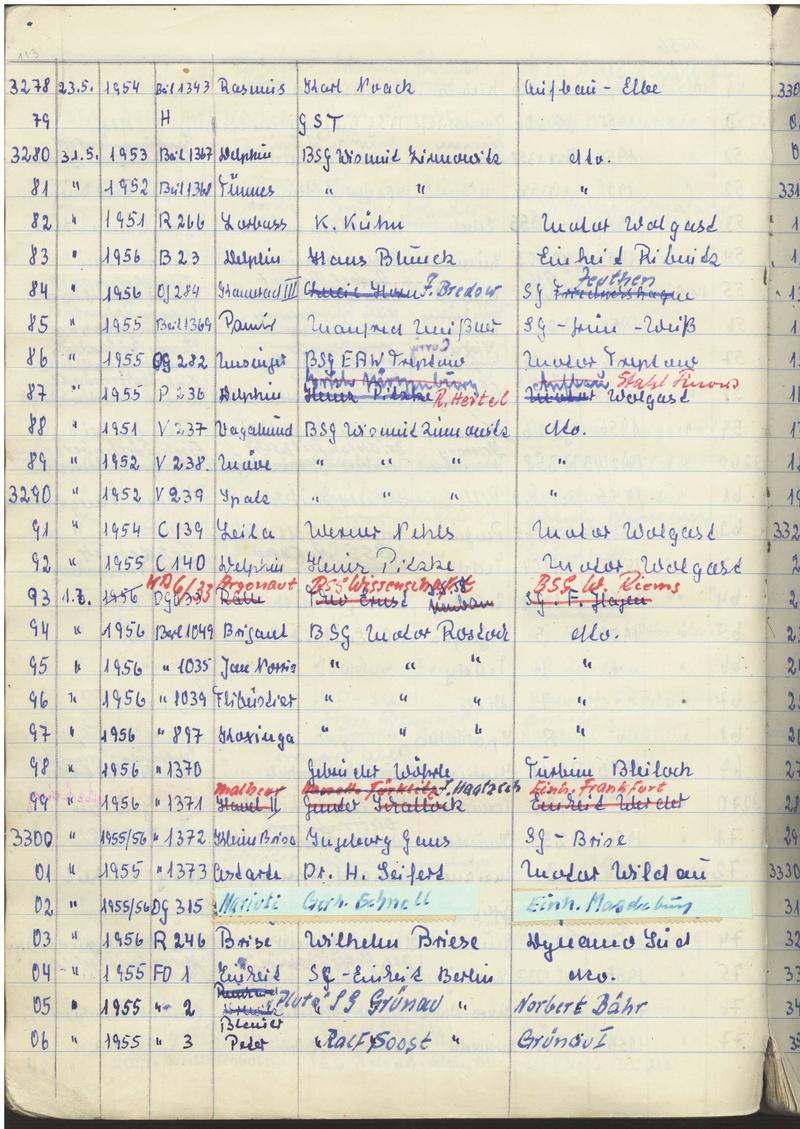 113
3278 23.5. 1954 Beil 1343 Rasmus Karl Noack Aufbau-Elbe 330
79 H GST
3280 31.5. 1953 Beil 1367 Delphin BSG Wismut Zinnowitz dto.
81 " 1952 Beil 1368 Tümmes " " " 331
82 " 1951 R 266 Lorbass K. Kühn Motor Wolgast
83 " 1956 B 23 Delphin Hans Blunck Einheit Ribnitz
Zeuthen
84 " 1956 OJ 284 Kamerad III F. Bredow SG Friedrichshagen
85 " 1955 Beil 1369 Pamir Manfred Meißner SG-Grün-Weiß
86 " 1955 OJ 282 BSG EAW Treptow Motor Treptow
Aufbau Stahl Finow
87 " 1955 P 236 Delphin Heinz Pitzke R. Hertel Motor Wolgast
88 " 1951 V 237 Vagabund BSG Wismut Zinnowitz dto.
89 " 1952 V 238. Möve " " " "
3290 " 1952 V 239 Spatz " " " "
91 " 1954 C 139 Leila Werner Nehls Motor Wolgast 332
92 " 1955 C 140 Delphin Heinz Pitzke Motor Wolgast
WD6/33 Argonaut BSG Wissenschaft BSG W. Riems
93 1.7. 1956 Ernst SG. F. Hagen
94 " 1956 Berl 1049 Brigant BSG Motor Rostock dto.
95 " 1956 " 1035 Jan Norris " " " "
96 " 1956 " 1039 Flibustier " " " "
97 " 1956 " 897 Koxinga " " " "
98 " 1956 " 1370 Gebrüder Wöhrle Turbine Bleiloch
Malheur Einh. Frankfurt
99 " 1956 " 1371 II Gunter Schallock Einheit Werder
3300 " 1955/56 " 1372 Kleine Brise Ingeborg Gens SG-Brise 29
01 " 1955 " 1373 Astarte Dr. H. Seifert Motor Wildau 3330
02 " 1955/56 DG 315 Gerh. Schnell Einh. Magdeburg 31
03 " 1956 R 246 Brise Wilhelm Briese Dynamo Süd 32
04 " 1955 FD 1 Einheit SG-Einheit Berlin dto. 33
05 " 1955 " 2 "Pluto" SG Grünau " Norbert Bähr 34
06 " 1955 " 3 Peter Ralf Soost " Grünau I 35